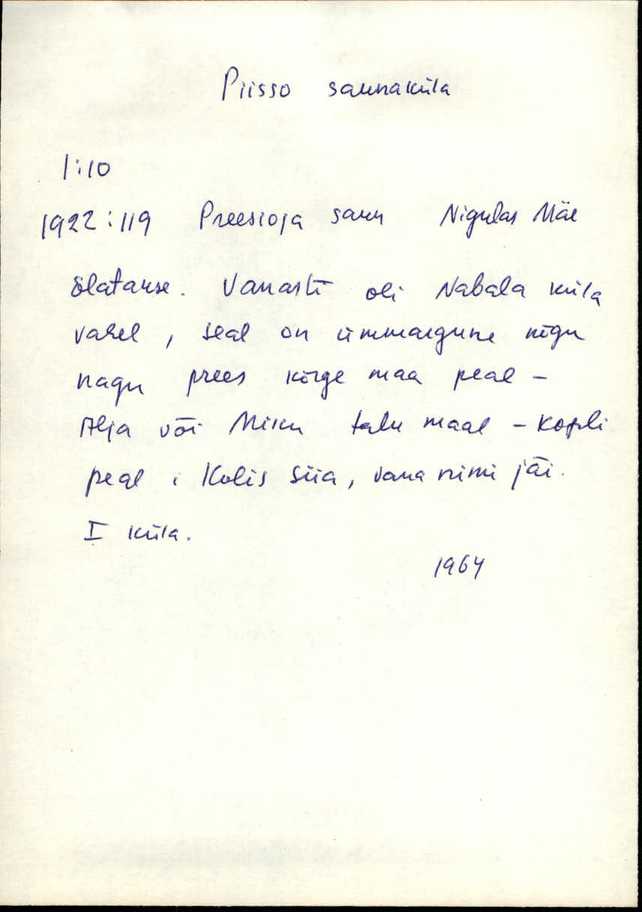 Piisso saunaküla
1:10
1922:119 Preesioja saun Nigulas Mäe
õlatakse. Vanasti oli Nabala küla
vahel, seal on ümmargune nõgu
nagu prees kõrge maa peal -
Alja või Miku talu maal - Kopli
peal. Kolis siia, vana nimi jäi.
I küla.
1964